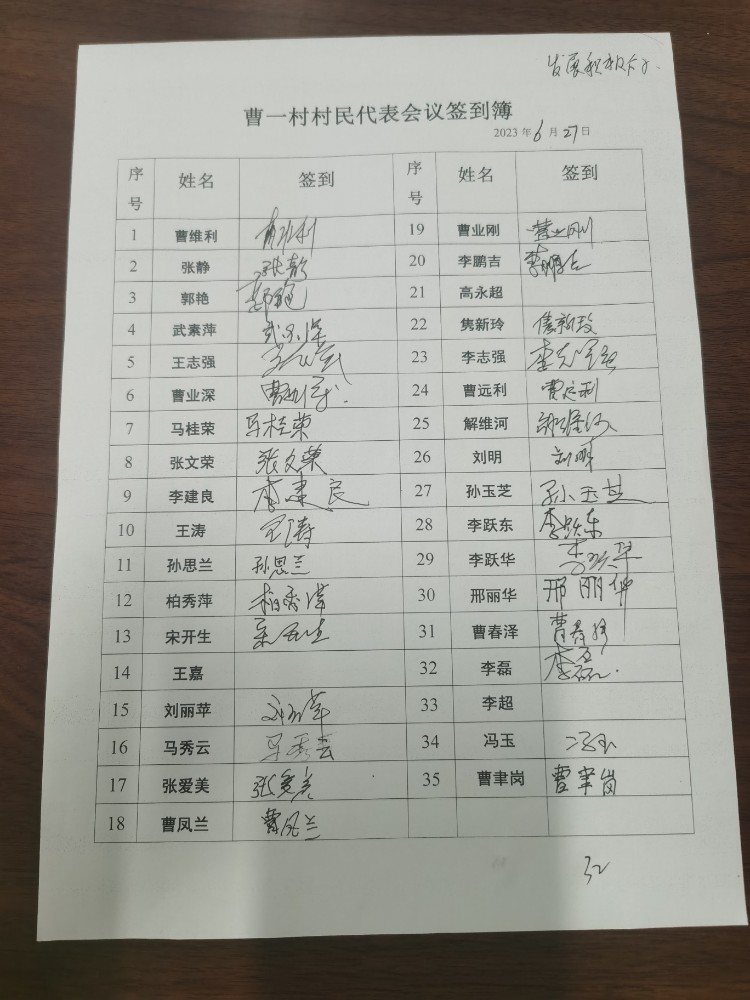 发展积极分子.
曹一村村民代表会议签到簿
2023 年 6 月 27 日
序号 姓名 签到 序号 姓名 签到
1 曹维利 曹维利 19 曹业刚 曹业刚
2 张静 张静 20 李鹏吉 李鹏吉
3 郭艳 郭艳 21 高永超
4 武素萍 武素萍 22 隽新玲 隽新玲
5 王志强 王志强 23 李志强 李志强
6 曹业深 曹业深 24 曹远利 曹远利
7 马桂荣 马桂荣 25 解维河 解维河
8 张文荣 张文荣 26 刘明 刘明
9 李建良 李建良 27 孙玉芝 孙玉芝
10 王涛 王涛 28 李跃东 李跃东
11 孙思兰 孙思兰 29 李跃华 李跃华
12 柏秀萍 柏秀萍 30 邢丽华 邢丽华
13 宋开生 宋开生 31 曹春泽 曹春泽
14 王嘉 32 李磊 李磊.
15 刘丽苹 刘丽苹 33 李超
16 马秀云 马秀云 34 冯玉 冯玉
17 张爱美 张爱美 35 曹聿岗 曹聿岗
18 曹凤兰 曹凤兰
32